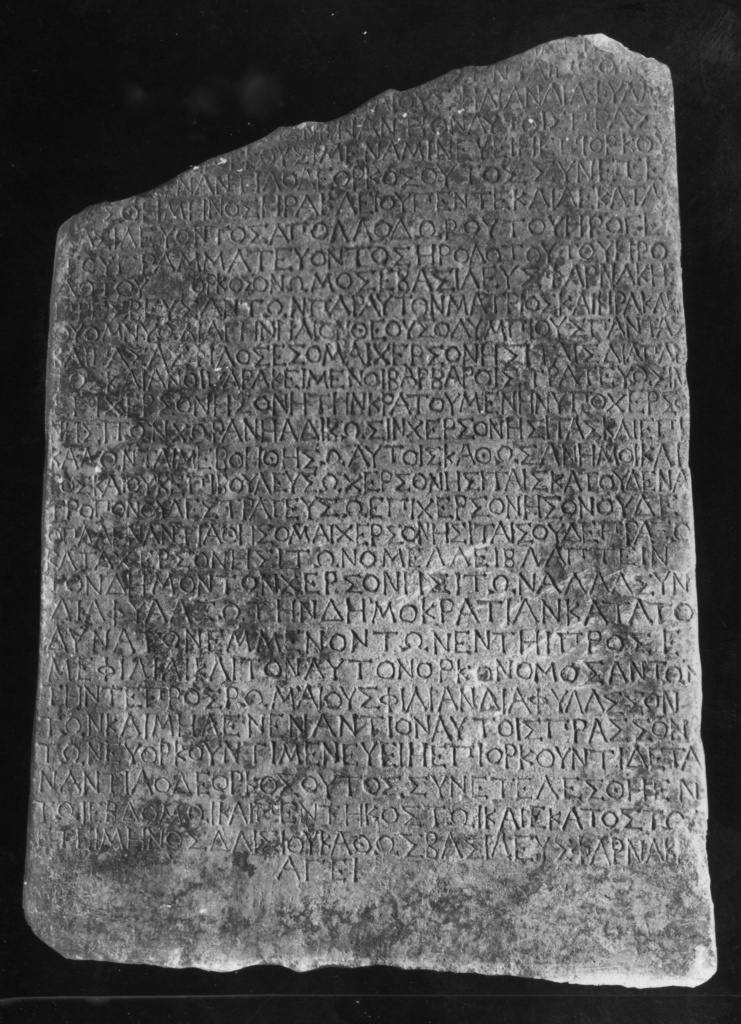 ΟΥΣΦΙΛΙΑΝΔΙΑΦΥΛΑΣ
ΝΕΝΑΝΤΙΟΝΑΥΤΟΙΣΠΡΑΣ
ΚΟΥΣΙΜΕΝΑΜΙΝΕΥΕΙΗΕΠΙΟΡΚΟ
ΝΑΝΤΙΑΟΔΕΟΡΚΟΣΟΥΤΟΣΣΥΝΕΤΕ
ΣΘΗΜΗΝΟΣΗΡΑΚΛΕΙΟΥΠΕΝΤΕΚΑΙΔΕΚΑΤΑΙ
ΒΑΣΙΛΕΥΟΝΤΟΣΑΠΟΛΛΟΔΩΡΟΥΤΟΥΗΡΟΓΕΙ
ΤΟΥΓΡΑΜΜΑΤΕΥΟΝΤΟΣΗΡΟΔΟΤΟΥΤΟΥΗΡΟ
ΔΟΤΟΥ ΟΡΚΟΣΟΝΩΜΟΣΕΒΑΣΙΛΕΥΣΦΑΡΝΑΚΗΣ
ΠΡΕΣΒΕΥΣΑΝΤΩΝΠΑΡΑΥΤΟΝΜΑΤΡΙΟΣΚΑΙΗΡΑΚΛ
ΟΜΝΥΩΔΙΑΓΗΝΗΛΙΟΝΘΕΟΥΣΟΛΥΜΠΙΟΥΣΠΑΝΤΑΣ
ΚΑΙΠΑΣΑΣΦΙΛΟΣΕΣΟΜΑΙΧΕΡΣΟΝΗΣΙΤΑΙΣΔΙΑΠΑΝ
ΤΟΣΚΑΙΑΝΟΙΠΑΡΑΚΕΙΜΕΝΟΙΒΑΡΒΑΡΟΙΣΤΡΑΤΕΥΩΣΙΝ
ΕΠΙΧΕΡΣΟΝΗΣΟΝΗΤΗΝΚΡΑΤΟΥΜΕΝΗΝΥΠΟΧΕΡΣΟ
ΝΗΣΙΤΩΝΧΩΡΑΝΗΑΔΙΚΩΣΙΝΧΕΡΣΟΝΗΣΙΤΑΣΚΑΙΕΠΙ
ΚΑΛΩΝΤΑΙΜΕΒΟΗΘΗΣΩΑΥΤΟΙΣΚΑΘΩΣΑΝΗΜΟΙΚΑΙ
ΡΟΣΚΑΙΟΥΚΕΠΙΒΟΥΛΕΥΣΩΧΕΡΣΟΝΗΣΙΤΑΙΣΚΑΤΟΥΔΕΝΑ
ΤΡΟΠΟΝΟΥΔΕΣΤΡΑΤΕΥΣΩΕΠΙΧΕΡΣΟΝΗΣΟΝΟΥΔΕ
ΥΠΕΝΑΝΤΙΑΘΗΣΟΜΑΙΧΕΡΣΟΝΗΣΙΤΑΙΣΟΥΔΕΠΡΑΞΩ
ΚΑΤΑΧΕΡΣΟΝΗΣΙΤΩΝΟΜΕΛΛΕΙΒΛΑΠΤΕΙΝ
ΤΟΝΔΗΜΟΝΤΟΝΧΕΡΣΟΝΗΣΙΤΩΝΑΛΛΑΣΥΝ
ΔΙΑΦΥΛΑΞΩΤΗΝΔΗΜΟΚΡΑΤΙΑΝΚΑΤΑΤΟ
ΔΥΝΑΤΟΝΕΜΜΕΝΟΝΤΩΝΕΝΤΗΙΠΡΟΣΕ
ΜΕΦΙΛΙΑΙΚΑΙΤΟΝΑΥΤΟΝΟΡΚΟΝΟΜΟΣΑΝΤΩΝ
ΤΗΝΤΕΠΡΟΣΡΩΜΑΙΟΥΣΦΙΛΙΑΝΔΙΑΦΥΛΑΣΣΟΝ
ΤΩΝΚΑΙΜΗΔΕΝΕΝΑΝΤΙΟΝΑΥΤΟΙΣΠΡΑΣΣΟΝ
ΤΩΝΕΥΟΡΚΟΥΝΤΙΜΕΝΕΥΕΙΗΕΠΙΟΡΚΟΥΝΤΙΔΕΤΑ
ΝΑΝΤΙΑΟΔΕΟΡΚΟΣΟΥΤΟΣΣΥΝΕΤΕΛΕΣΘΗΕΝ
ΤΩΙΕΒΔΟΜΩΙΚΑΙΠΕΝΤΗΚΟΣΤΩΙΚΑΙΕΚΑΤΟΣΤΩΙ
ΕΤΕΙΜΗΝΟΣΔΑΙΣΙΟΥΚΑΘΩΣΒΑΣΙΛΕΥΣΦΑΡΝΑΚ
ΑΓΕΙ